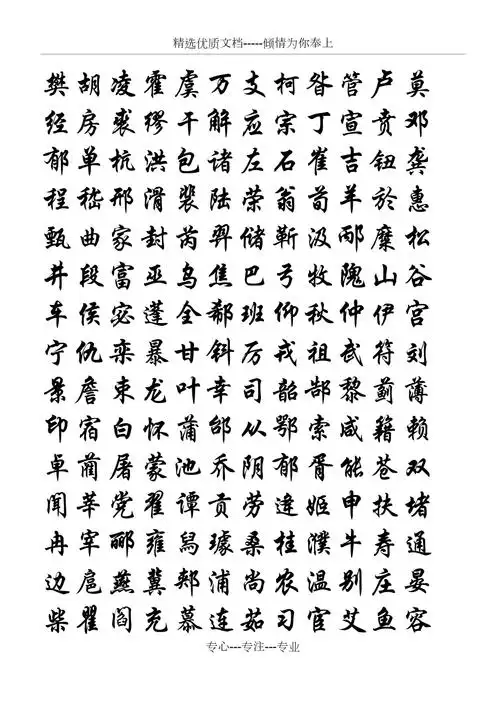 精选优质文档-----倾情为你奉上
樊胡凌霍虞万支柯昝管卢莫
经房裘缪干解应宗丁宣贲邓
郁单杭洪包诸左石崔吉钮龚
程嵇邢滑裴陆荣翁荀羊於惠
甄曲家封芮羿储靳汲邴糜松
井段富巫乌焦巴弓牧隗山谷
车侯宓蓬全郗班仰秋仲伊宫
宁仇栾暴甘钭厉戎祖武符刘
景詹束龙叶幸司韶郜黎蓟薄
印宿白怀蒲邰从鄂索咸籍赖
卓蔺屠蒙池乔阴郁胥能苍双
闻莘党翟谭贡劳逄姬申扶堵
冉宰郦雍舄璩桑桂濮牛寿通
边扈燕冀郏浦尚农温别庄晏
柴瞿阎充慕连茹习宦艾鱼容
专心---专注---专业